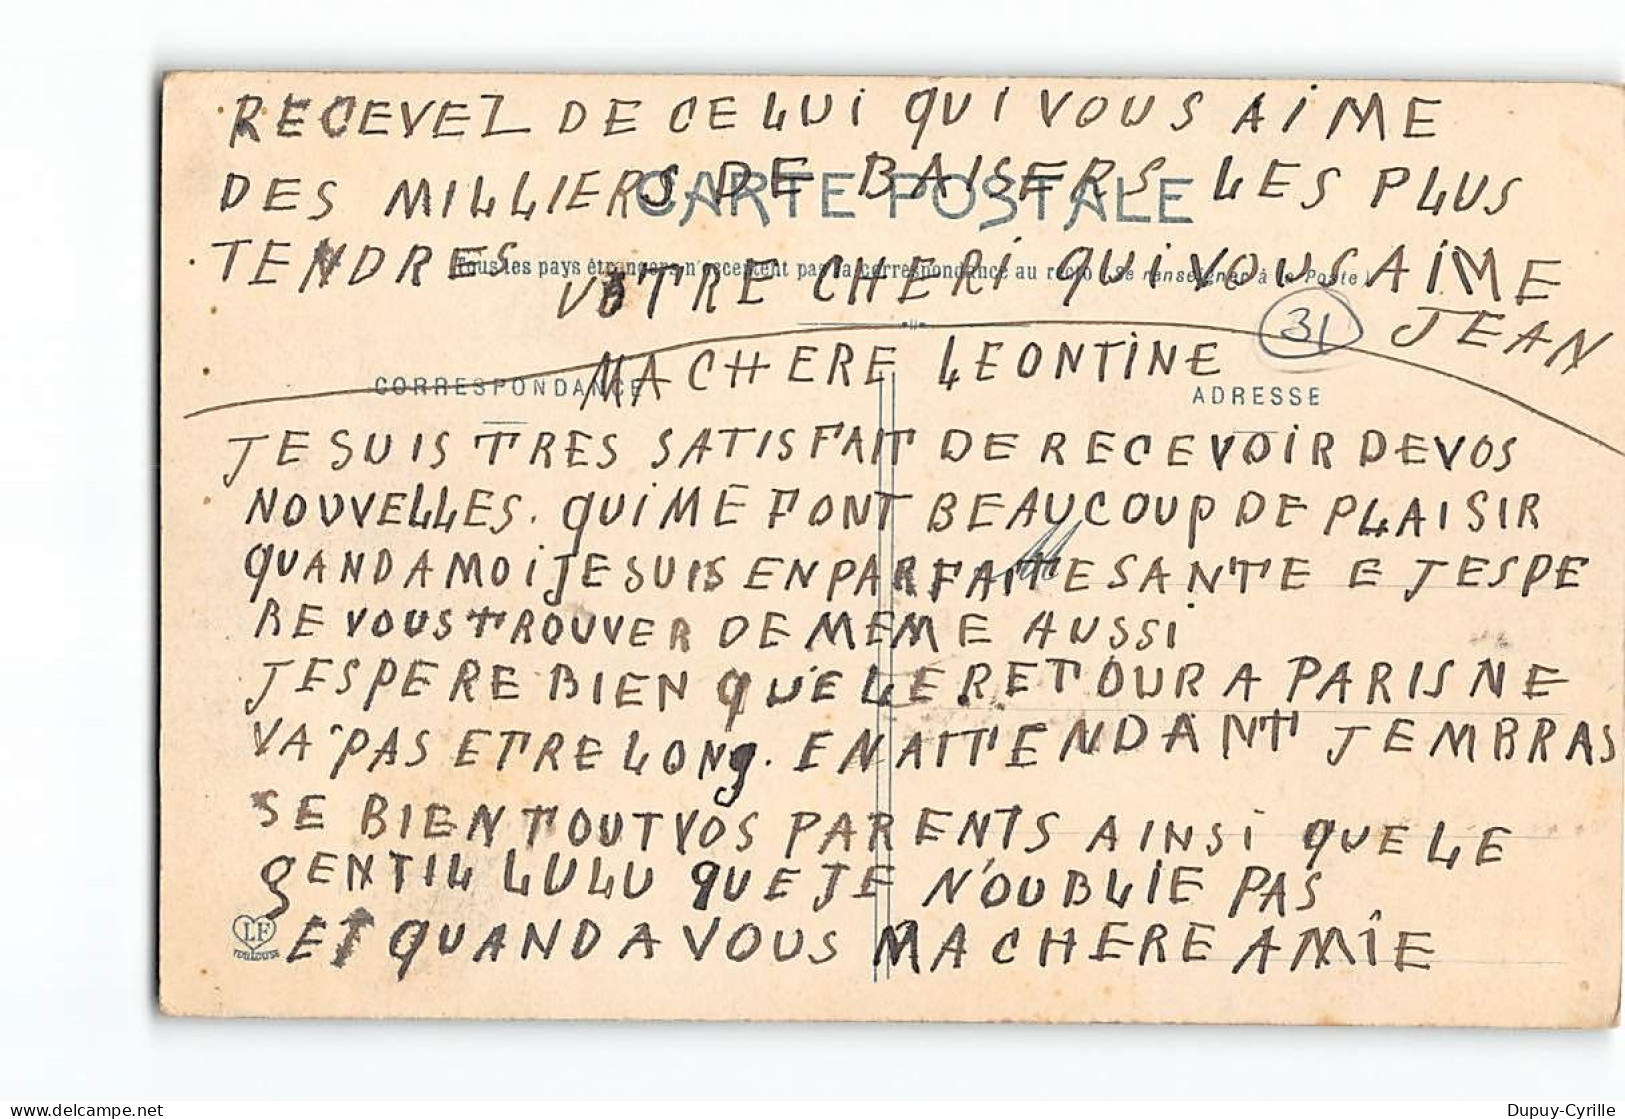 RECEVEZ DE CELUI QUI VOUS AIME
DES MILLIERS DE BAISERS LES PLUS
CARTE POSTALE
TENDRES
Tous les pays étrangers n'acceptent pas la correspondance au recto (Se renseigner à la Poste)
VOTRE CHERI QUI VOUS AIME
JEAN
31
MA CHERE LEONTINE
CORRESPONDANCE
ADRESSE
JE SUIS TRES SATISFAIT DE RECEVOIR DE VOS
NOUVELLES. QUI ME FONT BEAUCOUP DE PLAISIR
QUAND A MOI JE SUIS EN PARFAITE SANTE E JESPE
RE VOUS TROUVER DE MEME AUSSI
JESPERE BIEN QUE LE RETOUR A PARIS NE
VA PAS ETRE LONg. EN ATTENDANT JEMBRAS
SE BIEN TOUT VOS PARENTS AINSI QUE LE
gENTIL LULU QUE JE N'OUBLIE PAS
ET QUAND A VOUS MA CHERE AMÎE
LF
TOULOUSE
Dupuy-Cyrille